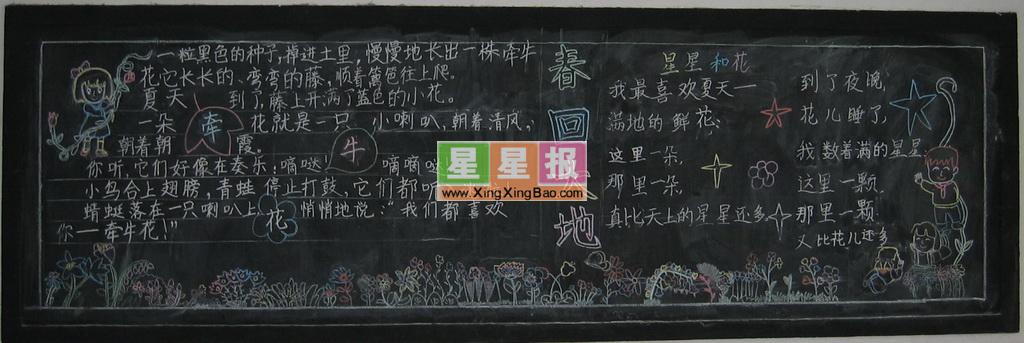 一粒黑色的种子,掉进土里,慢慢地长出一株牵牛
花它长长的、弯弯的藤、顺着篱笆往上爬。
夏天 到了,藤上开满了蓝色的小花。
一朵 牵 花就是一只 小喇叭,朝着清风,
朝着朝 霞。 牛
你听,它们好像在奏乐:嘀哒! 嘀嘀哒
小鸟合上翅膀,青蛙停止打鼓、它们都听
蜻蜓落在一只喇叭上 花 悄悄地说:“我们都喜欢
你一牵牛花!”
春
回
大
地
星星和花
我最喜欢夏天一
满地的鲜花:
这里一朵,
那里一朵,
真比天上的星星还多。
到了夜晚,
花儿睡了,
我数着满的星星
这里一颗
那里一颗
又比花儿还多
星星报
www.XingXingBao.com